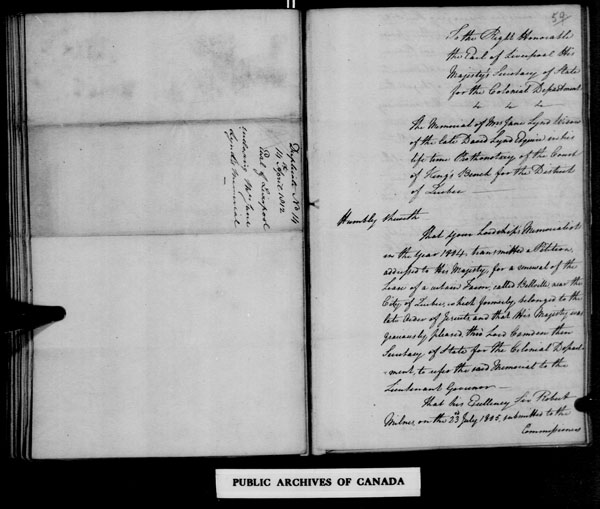 Duplicate No 14
14th April 1812
Earl of Liverpool
enclosing Mrs Jane
Lynd's Memorial
59
To the Right Honorable
the Earl of Liverpool His
Majesty's Secretary of State
for the Colonial Department
The Memorial of Mrs Jane Lynd Widow
of the late David Lynd Esquire in his
life time Prothonotary of the Court
of King's Bench for the District
of Quebec
Humbly Sheweth
That your Lordship's Memorialist
in the Year 1804, transmitted a Petition,
addressed to His Majesty, for a renewal of the
Lease of a certain Farm, called Bellville, near the
City of Quebec, which formerly belonged to the
late Order of Jesuits, and that His Majesty was
graciously pleased, thro Lord Camden then
Secretary of State for the Colonial Depart-
-ment, to refer the said Memorial to the
Lieutenant Governor
That his Excellency Sir Robert
Milnes, on the 23d July 1805, submitted to the
Commissioners
PUBLIC ARCHIVES OF CANADA